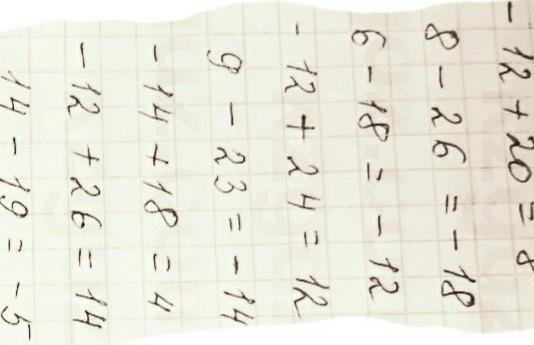 - 12 + 20 = 8
8 - 26 = - 18
6 - 18 = - 12
- 12 + 24 = 12
9 - 23 = - 14
- 14 + 18 = 4
- 12 + 26 = 14
14 - 19 = - 5